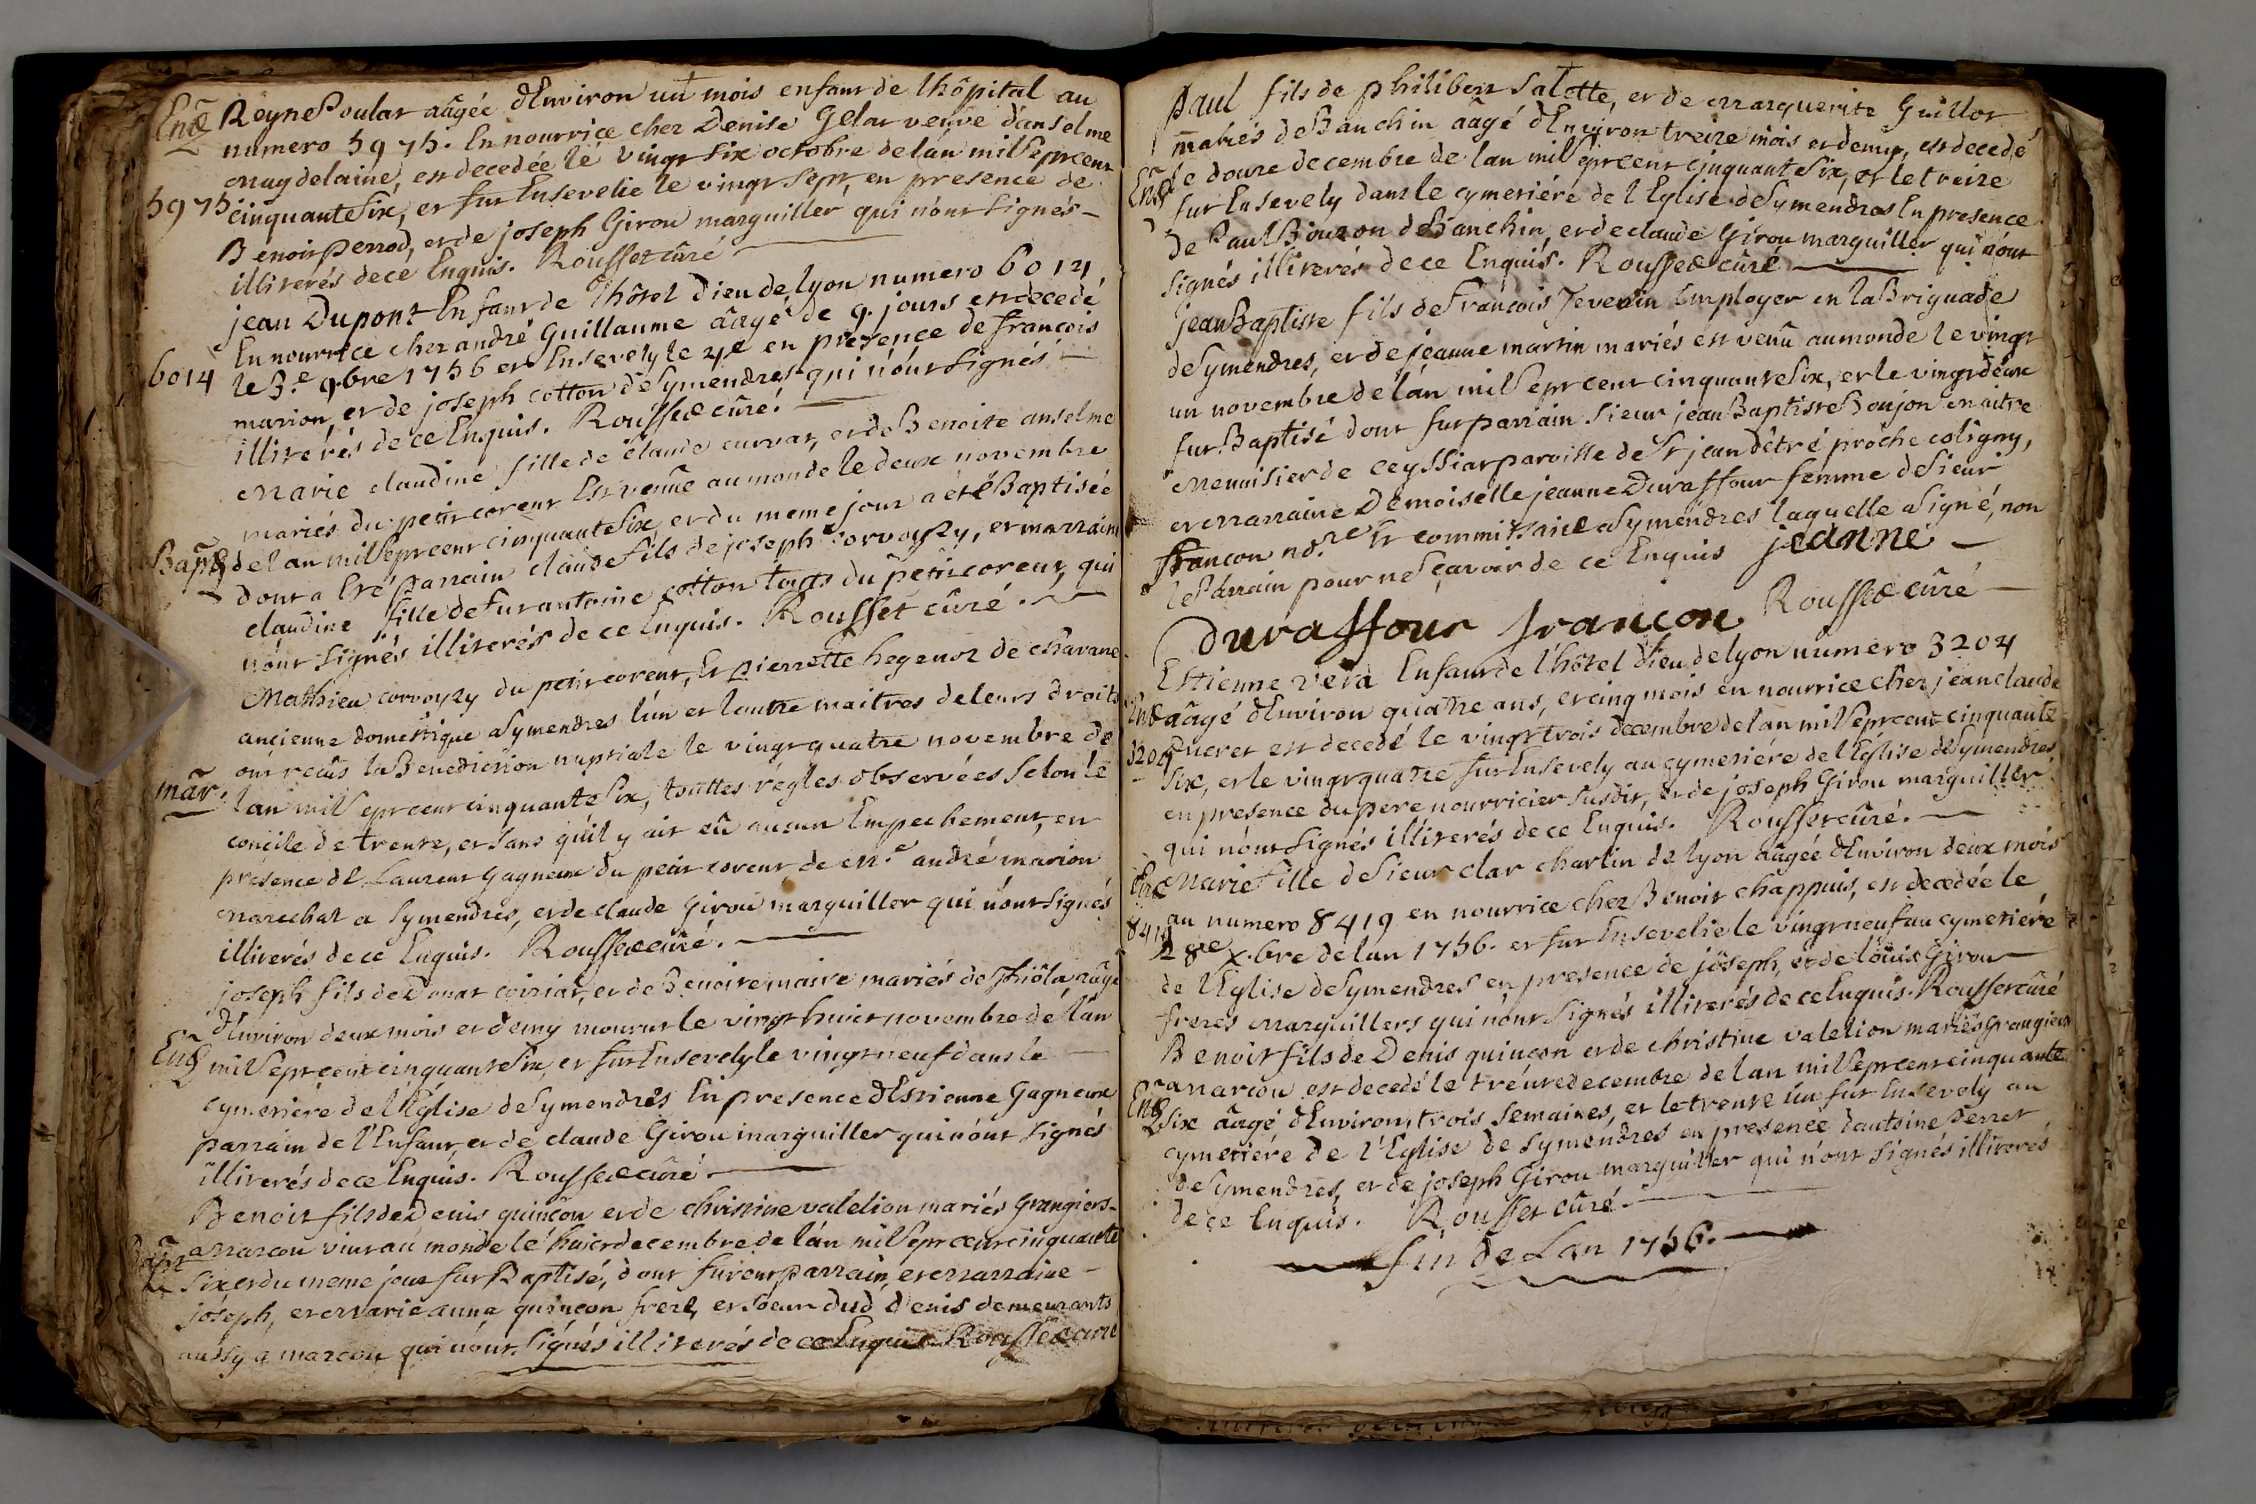 Ent Reyne Poular aagée d'Environ un mois enfant de lhôpital au
numero 5975. En nourrice chez Denise Gelat veuve d'anselme
magdelaine, est decedée lé vingt six octobre de lán mil sept cent
5975 cinquante six, et fut Ensevelie le vingt sept, en presence de
Benoit perrod, et de joseph Girou marguiller qui nónt signés
illiterés de ce Enquis. Rousset curé
jean Dupont Enfant de lhôtel Dieu de lyon numero 6014
En nourrice chez andré Guillaume âagé de 9. jours est decedé
6014 le 3.e 9.bre 1756 et Ensevely le 4e en presence de francois
marion, et de joseph cotton de Symendres qui nónt signés
illiterés de ce Enquis. Rousset cûré.
Marie claudine fille de claude curvat, et de Benoite anselme
mariés du petit corent Est venûe au monde le deux novembre
Bapt de lan mil sept cent cinquante six et du meme jour a été Baptisée
dont a Eté parrain claude fils de joseph corvoyzy, et marraine
claudine fille de fut antoine cotton touts du petit corent qui
nont signés illiterés de ce Enquis. Rousset cûré.
Mathieu corvoyzy du petit corent, Et pierrette hegenod de chavane
ancienne domestique a Symendres lún et lautre maitres de leurs droits
ont recûs la Benediction nuptiale le vingt quatre novembre de
mar. lan mil sept cent cinquante six, touttes régles observées selon le
concile de trente, et sans quil y ait eû aucun Empechement, en
presence de Laurent gagneux du petit corent, de m.e andré marion
marechal a Symendres, et de claude Girou marguiller qui nónt signés
illiterés de ce Enquis. Rousset curé.
joseph fils de Donat coiriat, et de Benoite maire mariés de aâgé
d'Environ deux mois et demy mourut le vingt huict novembre de lán
Ent mil sept cent cinquante six, et fut Ensevely le vingt neuf dans le
cymetiére de l'Eglise de Symendres En presence d'Estienne Gagneux
parrain de l'Enfant, et de claude Girou marguiller qui nónt signés
illiterés de ce Enquis. Rousset curé
Benoit fils de Denis quinson et de christine valelion mariés Grangiers
a marcou vint au monde lé huict decembre de lán mil sept cent cinquante
Bapt six et du meme jour fut Baptisé, dont furent parrain, et marraine
joseph, et marie anna quinson frere, et soeur dud. denis demeurants
aussy a marcou qui nónt signés illiterés de ce Enquis Rousset curé
Paul fils de philibert Salotte, et de marguerite Guillot
mariés de Banchin aâgé d'Environ treize mois et demy, est decedé
Ent le douze decembre de lan mil sept cent cinquante six, et le treize
fut Ensevely dans le cymetiére de l'Eglise de Symendres En presence
de Paul Bouzon de Banchin, et de claude Girou marguiller qui nónt
signés illiterés de ce Enquis. Rousset cûré
jean Baptiste fils de François Tevenin Employer en la Briguade
de Symendres, et de jeanne martin mariés est venû au monde le vingt
un novembre de lán mil sept cent cinquante six, et le vingt deux
fut Baptisé dont fut parrain Sieur jean Baptiste Boujon maitre
Menuisier de ceyssiat paroisse de St jean d'étré proche coligny,
et marraine Demoiselle jeanne Duraffour femme de Sieur
francon no.re Et commissaire a Symendres laquelle a signé, non
le Parrain pour ne sçavoir de ce Enquis jeanne
Duraffour francon Rousset cûré
Estienne vera Enfant de l'hôtel Dieu de lyon numero 3204
Ent aâgé d'Environ quatre ans, et cinq mois en nourrice chez jean claude
3204 est decedé le vingt trois decembre de lan mil sept cent cinquante
six, et le vingt quatre fut Ensevely au cymetiére de l'Eglise de Symendres
en presence du pere nourricier susdit, et de joseph Girou marguiller
qui nónt signés illiterés de ce Enquis. Rousset cûré.
Ent Marie fille de Sieur clar charlin de lyon aâgée d'Environ deux mois
au numero 8419 en nourrice chez Benoit chappuis, est decedée le
8419 28e X.bre de lan 1756. et fut Ensevelie le vingt neuf au cymetiére
de l'Eglise de Symendres en presence de joseph, et de loüis Girou
freres marguillers qui nónt signés illiterés de ce Enquis. Rousset cûré
Benoit fils de Denis quinson et de christine valelion mariés Grangiers
a marcou est decedé le trénte decembre de lan mil sept cent cinquante
Ent six âagé d'Environ trois semaines, et le trente un fut Ensevely au
cymetiére de l'Eglise de Symendres en presence dantoine Perret
de Symendres, et de joseph Girou marguiller qui nónt signés illiterés
de ce Enquis. Rousset cûré.
fin de Lan 1756.